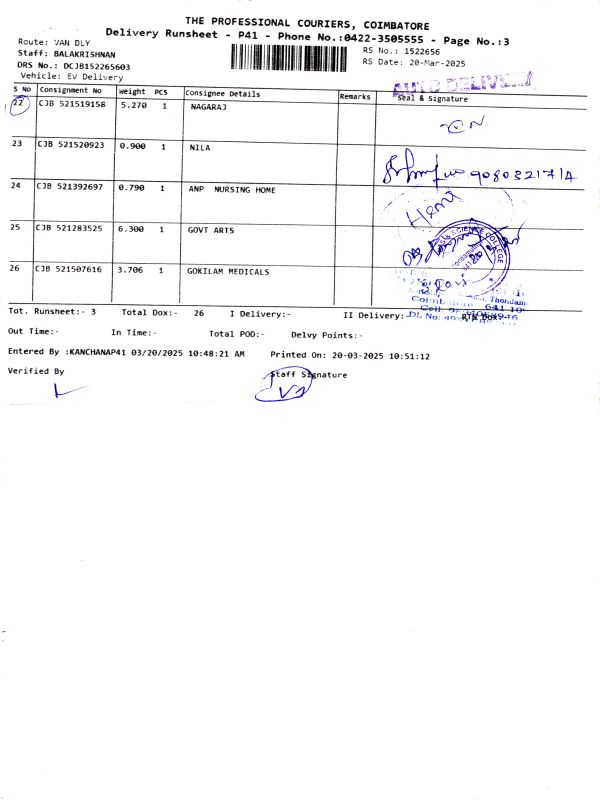 THE PROFESSIONAL COURIERS, COIMBATORE
Delivery Runsheet - P41 - Phone No.:0422-3505555 - Page No.:3
Route: VAN DLY
RS No.: 1522656
Staff: BALAKRISHNAN
RS Date: 20-Mar-2025
DRS No.: DCJB152265603
Vehicle: EV Delivery
AUTO DELIVERY
S No Consignment No Weight PCS Consignee Details Remarks Seal & Signature
22 CJB 521519158 5.270 1 NAGARAJ
23 CJB 521520923 0.900 1 NILA
9080321714
24 CJB 521392697 0.790 1 ANP NURSING HOME
Hema
25 CJB 521283525 6.300 1 GOVT ARTS
SCIENCE COLLEGE
26 CJB 521507616 3.706 1 GOKILAM MEDICALS
Thondam
Coimbatore 641 10
Tot. Runsheet:- 3 Total Dox:- 26 I Delivery:- II Delivery:- RTN Dox:-
DL No:
Out Time:- In Time:- Total POD:- Delvy Points:-
Entered By :KANCHANAP41 03/20/2025 10:48:21 AM Printed On: 20-03-2025 10:51:12
Verified By Staff Signature